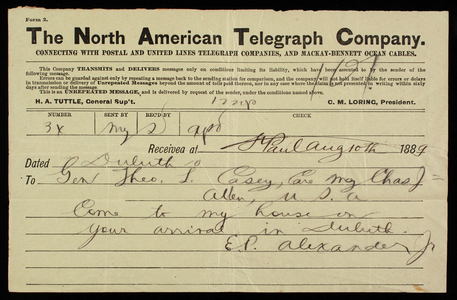 Form 2.
The North American Telegraph Company.
CONNECTING WITH POSTAL AND UNITED LINES TELEGRAPH COMPANIES, AND MACKAY-BENNETT OCEAN CABLES.
This Company TRANSMITS and DELIVERS messages only on conditions limiting its liability, which have been assented to by the sender of the
following message.
Errors can be guarded against only by repeating a message back to the sending station for comparison, and the company will not hold itself liable for errors or delays
in transmission or delivery of Unrepeated Messages beyond the amount of tolls paid thereon, nor in any case where the claim is not presented in writing within sixty
days after sending the message.
This is an UNREPEATED MESSAGE, and is delivered by request of the sender, under the conditions named above.
H. A. TUTTLE, General Sup't. C. M. LORING, President.
NUMBER SENT BY REC'D BY CHECK
3x my
Received at St Paul Aug 10th 1889
Dated Duluth
To Gen Theo. L. Casey, Care Maj Chas J=
Allen, U S. a
Come to my house on
your arrival in Duluth.
E. P. Alexander Jr